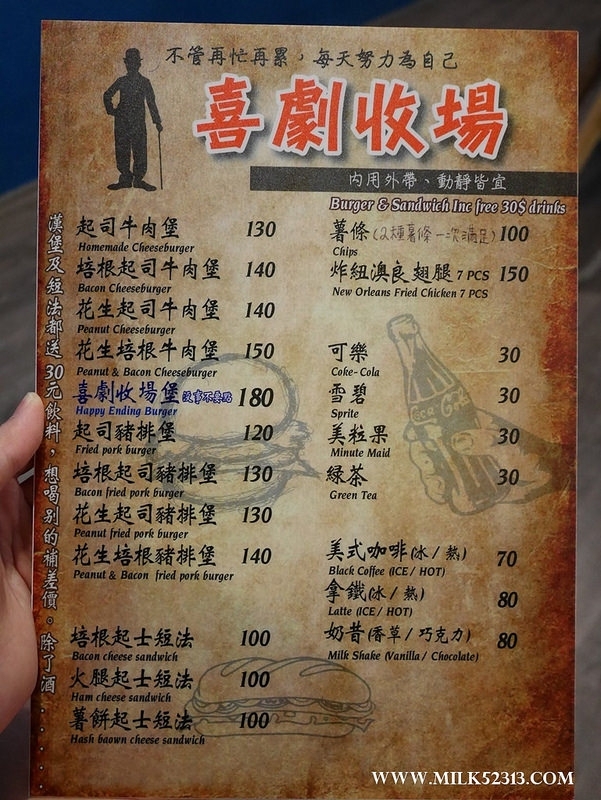 不管再忙再累，每天努力為自己
喜劇收場
內用外帶、動靜皆宜
Burger & Sandwich Inc free 30$ drinks
漢堡及短法都送30元飲料，想喝別的補差價。除了酒......
起司牛肉堡 130
Homemade Cheeseburger
培根起司牛肉堡 140
Bacon Cheeseburger
花生起司牛肉堡 140
Peanut Cheeseburger
花生培根牛肉堡 150
Peanut & Bacon Cheeseburger
喜劇收場堡 沒事不要點 180
Happy Ending Burger
起司豬排堡 120
Fried pork burger
培根起司豬排堡 130
Bacon fried pork burger
花生起司豬排堡 130
Peanut fried pork burger
花生培根豬排堡 140
Peanut & Bacon fried pork burger
培根起士短法 100
Bacon cheese sandwich
火腿起士短法 100
Ham cheese sandwich
薯餅起士短法 100
Hash baown cheese sandwich
薯條(2種薯條一次滿足) 100
Chips
炸紐澳良翅腿 7 PCS 150
New Orleans Fried Chicken 7 PCS
可樂 30
Coke-Cola
雪碧 30
Sprite
美粒果 30
Minute Maid
綠茶 30
Green Tea
Coca-Cola
美式咖啡(冰 / 熱) 70
Black Coffee (ICE / HOT)
拿鐵(冰 / 熱) 80
Latte (ICE / HOT)
奶昔(香草 / 巧克力) 80
Milk Shake (Vanilla / Chocolate)
WWW.MILK52313.COM